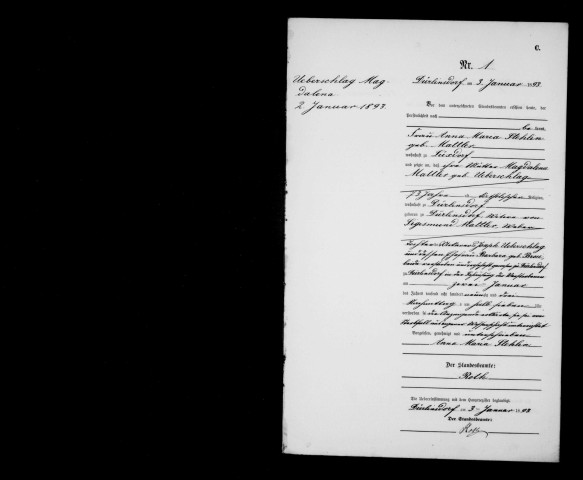 C.
Nr. 1.
Ueberschlag Mag-
dalena
2 Januar 1893
Dürlinsdorf am 3. Januar 1893
Vor dem unterzeichneten Standesbeamten erschien heute, der
Persönlichkeit nach
be kannt,
Frau Anna Maria Stehlin
geb. Mattler
wohnhaft zu
und zeigte an, daß ihre Mutter Magdalena
Mattler geb. Ueberschlag
73 Jahre alt, katholischer Religion,
wohnhaft zu Dürlinsdorf
geboren zu Dürlinsdorf, Witwe von
Sigismund Mattler, Weber
Tochter Joseph Ueberschlag
und dessen Ehefrau Barbara geb.
zu Dürlinsdorf
zu Dürlinsdorf in der
am zwei Januar
des Jahres tausend acht hundert neunzig und drei
Nachmittags um halb sieben Uhr
verstorben sei
Vorgelesen, genehmigt und unterschrieben
Anna Maria Stehlin
Der Standesbeamte:
Roth
Die Uebereinstimmung mit dem Hauptregister beglaubigt
Dürlinsdorf am 3. Januar 1893
Der Standesbeamte:
Roth